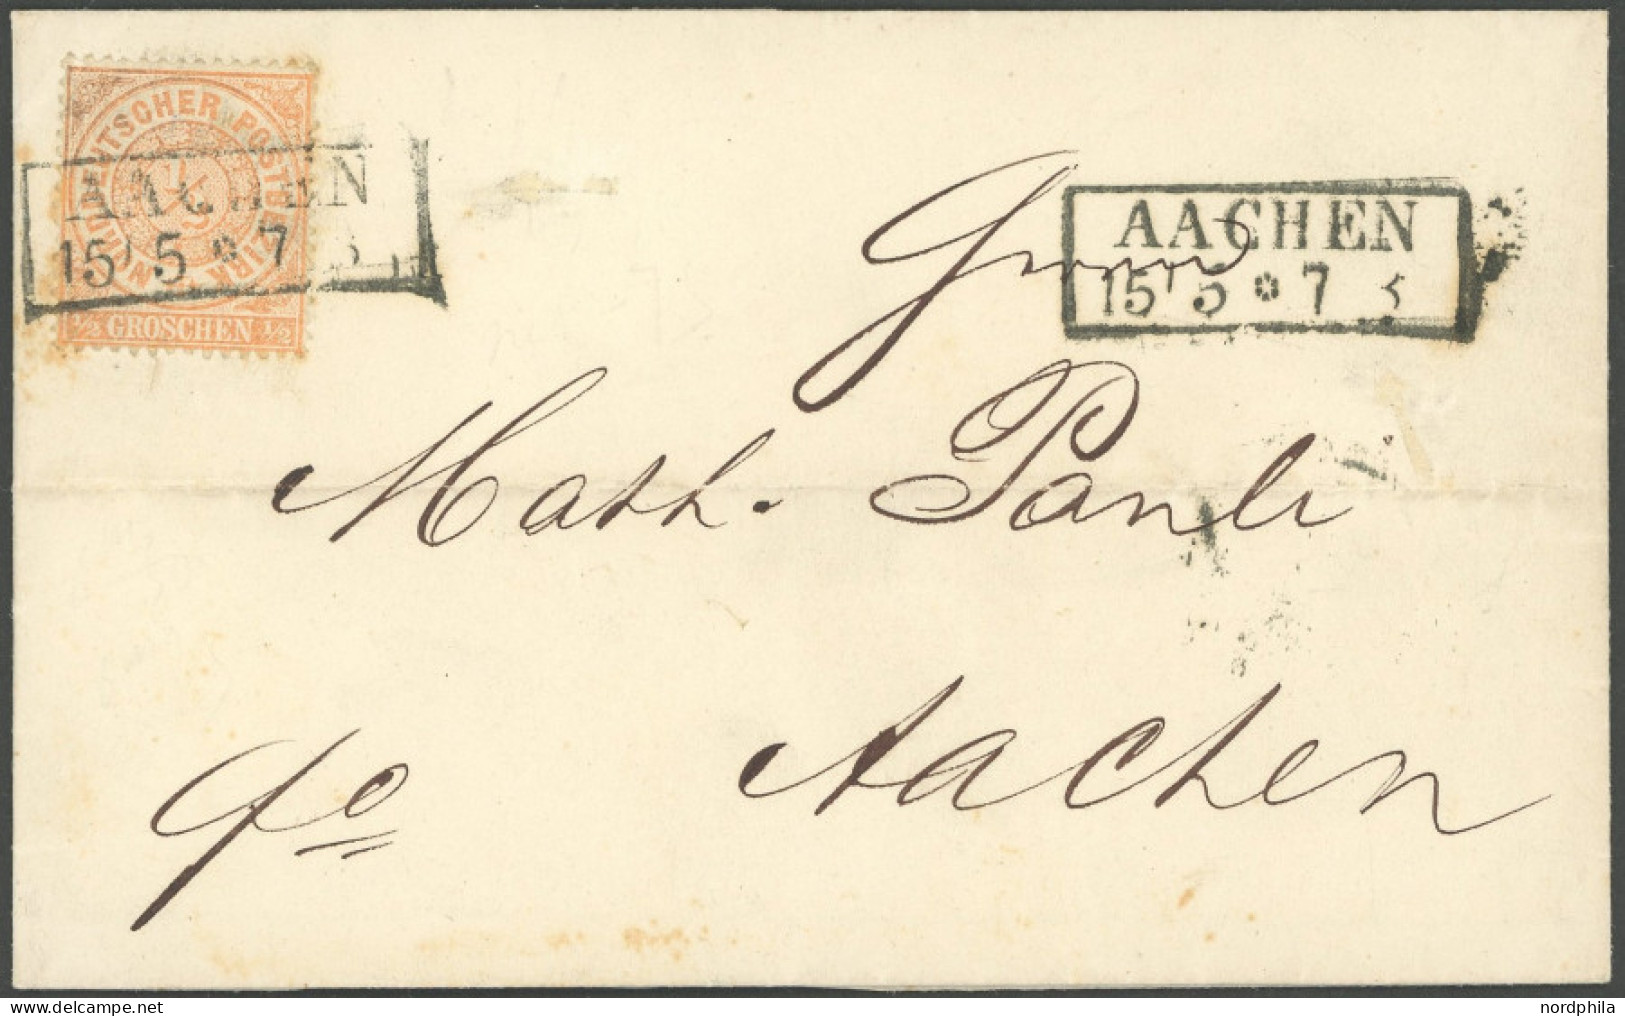 NORDDEUTSCHER POSTBEZIRK
1/2
1/2 GROSCHEN 1/2
AACHEN
15 5 * 7
AACHEN
15 5 * 7
Herrn
Math. Pauli
Aachen
fo
nordphila